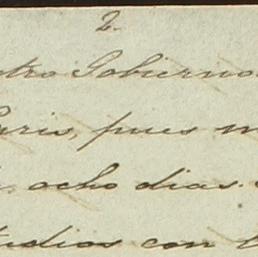 2.
tro Gobierno
Paris, pues
ocho dias
tudios con